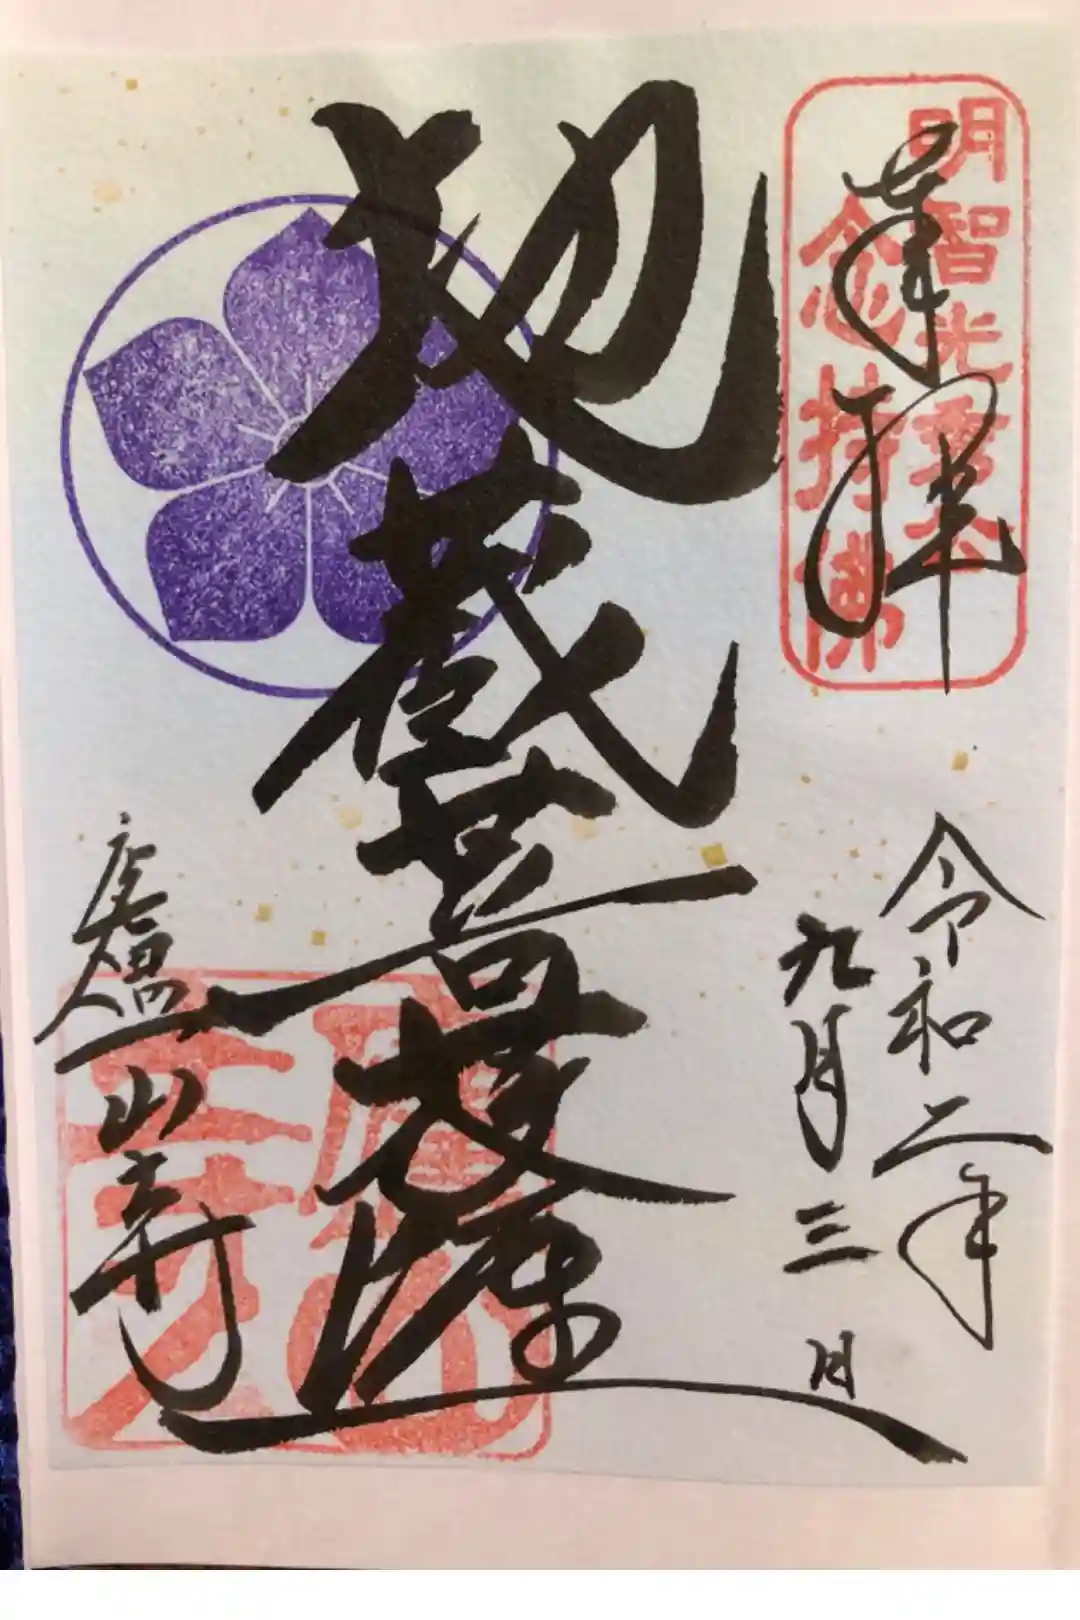 奉拝
明智光秀公
念持佛
令和二年
九月三日
地蔵菩薩
廬山寺